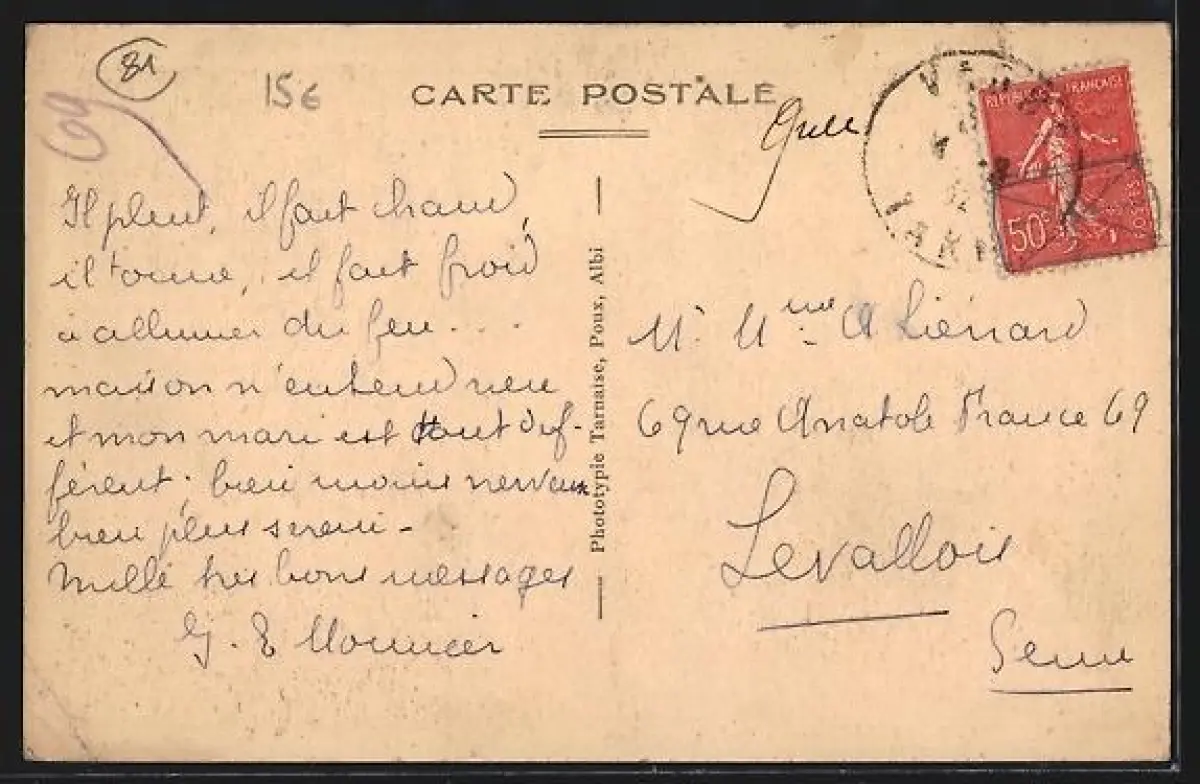 81
69
15€
CARTE POSTALE
Il pleut, il fait chaud,
il tonne, il fait froid
à allumer du feu....
maison n'entend rien
et mon mari est tout dif-
férent. bien moins nerveux
bien plus serein -
Mille très bons messages
G. E Mounier
Phototypie Tarnaise, Poux, Albi
RÉPUBLIQUE FRANÇAISE
50c
POSTES
TARN
Mr. Mme A Liénard
69 rue Anatole France 69
Levallois
Seine